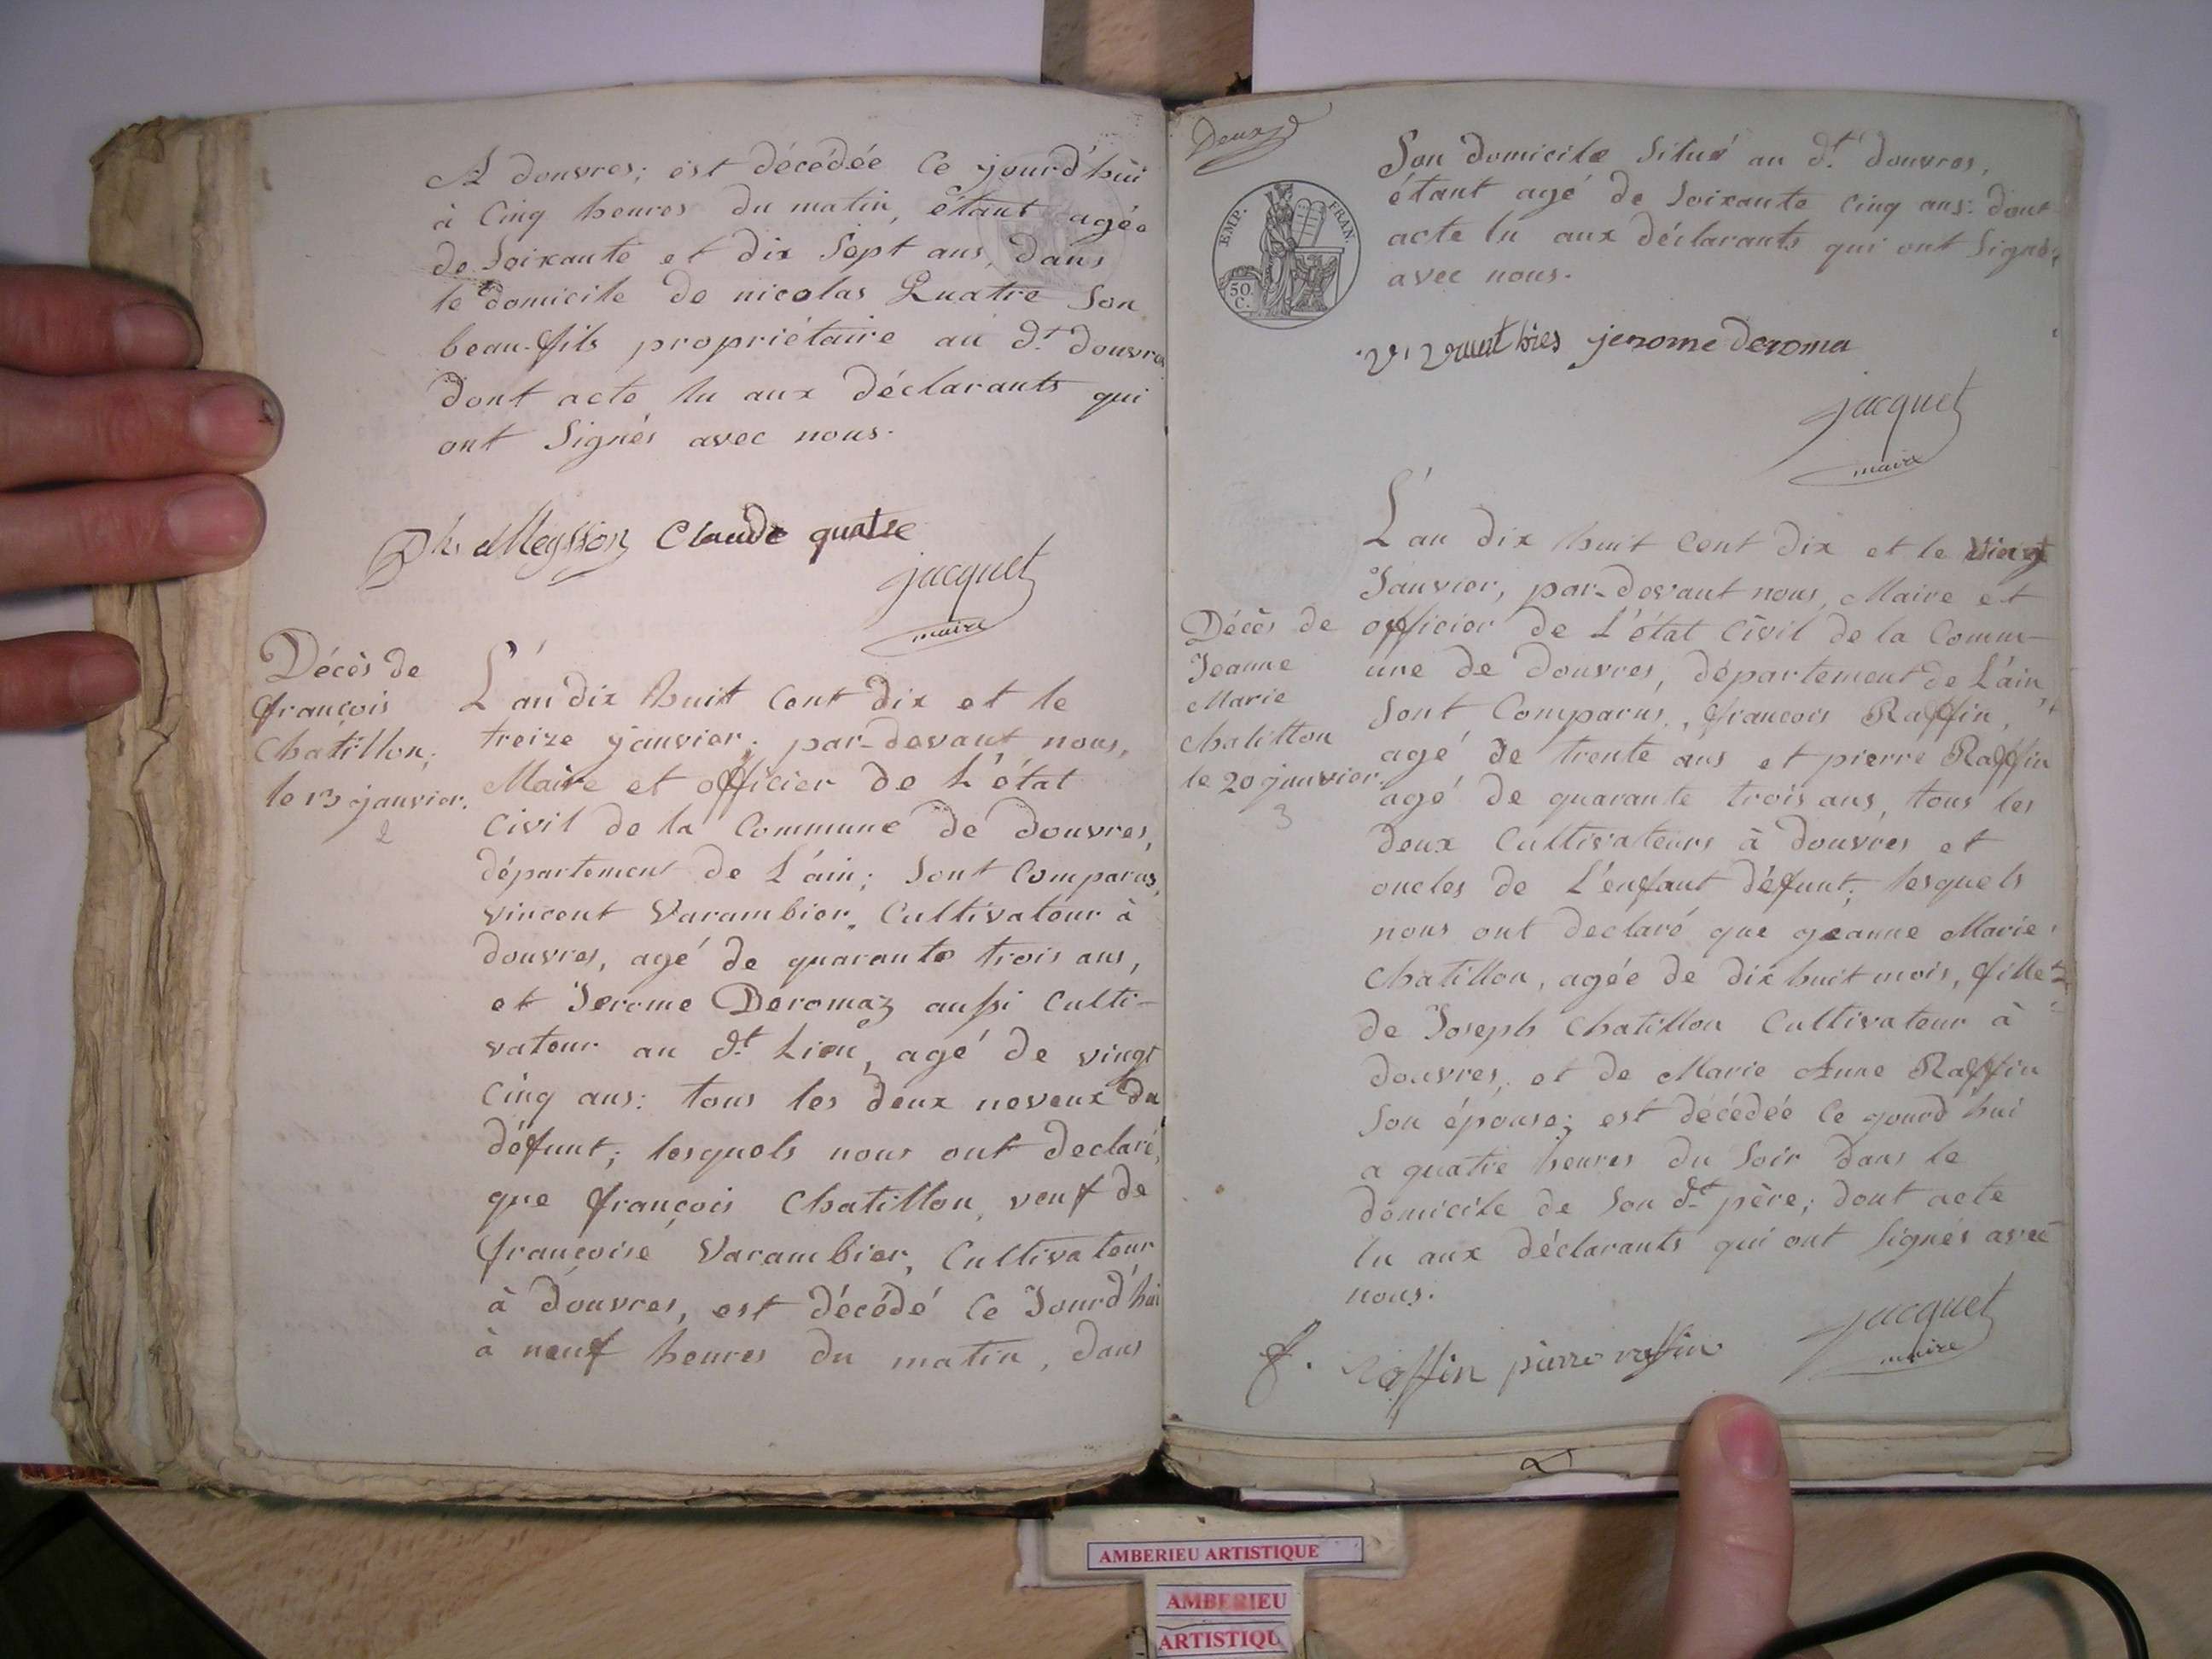 A douvres; est décédée Ce jourd'hui
à Cinq heures du matin, étant agée
de Soixante et dix Sept ans, dans
le domicile de nicolas Quatre Son
beau-fils propriétaire au dt. douvres
Dont acte lu aux déclarants qui
ont Signés avec nous.
Meysson Claude quatre
jacquet
maire
Décès de
françois
Chatillon,
le 13 janvier.
2
L'an dix huit Cent dix et le
treize janvier; par-devant nous,
Maire et officier de L'état
Civil de la Commune de douvres,
département de L'ain; Sont Comparus,
vincent Varambier, Cultivateur à
douvres, agé de quarante trois ans,
et Jerome Deromaz aussi Culti-
vateur au dt. Lieu, agé de vingt
Cinq ans: tous les deux neveux du
défunt; lesquels nous ont declaré,
que françois Chatillon, veuf de
françoise Varambier, Cultivateur
à douvres, est décédé Ce Jourd'hui
à neuf heures du matin, dans
Deux
EMP. FRAN.
50 C.
Son domicile Situé au dt. douvres,
étant agé de Soixante Cinq ans: dont
acte lu aux déclarants qui ont Signés
avec nous.
jerome deroma
jacquet
maire
Décès de
Jeanne
Marie
chatillon
le 20 janvier.
3
L'an dix huit Cent dix et le vingt
Janvier, par-devant nous, Maire et
officier de L'état Civil de la Comm-
une de Douvres, département de L'ain
Sont Comparus, françois Raffin,
agé de trente ans et pierre Raffin
agé de quarante trois ans, tous les
deux Cultivateurs à Douvres et
oncles de L'enfant défunt; lesquels
nous ont declaré que jeanne Marie
Chatillon, agée de dix huit mois, fille
de Joseph Chatillon Cultivateur à
douvres, et de Marie Anne Raffin
Son épouse; est décédée Ce jourd'hui
a quatre heures du Soir dans le
domicile de Son dt. père; dont acte
lu aux déclarants qui ont Signés avec
nous.
f. raffin pierre raffin
jacquet
maire
AMBERIEU ARTISTIQUE
AMBERIEU
ARTISTIQU